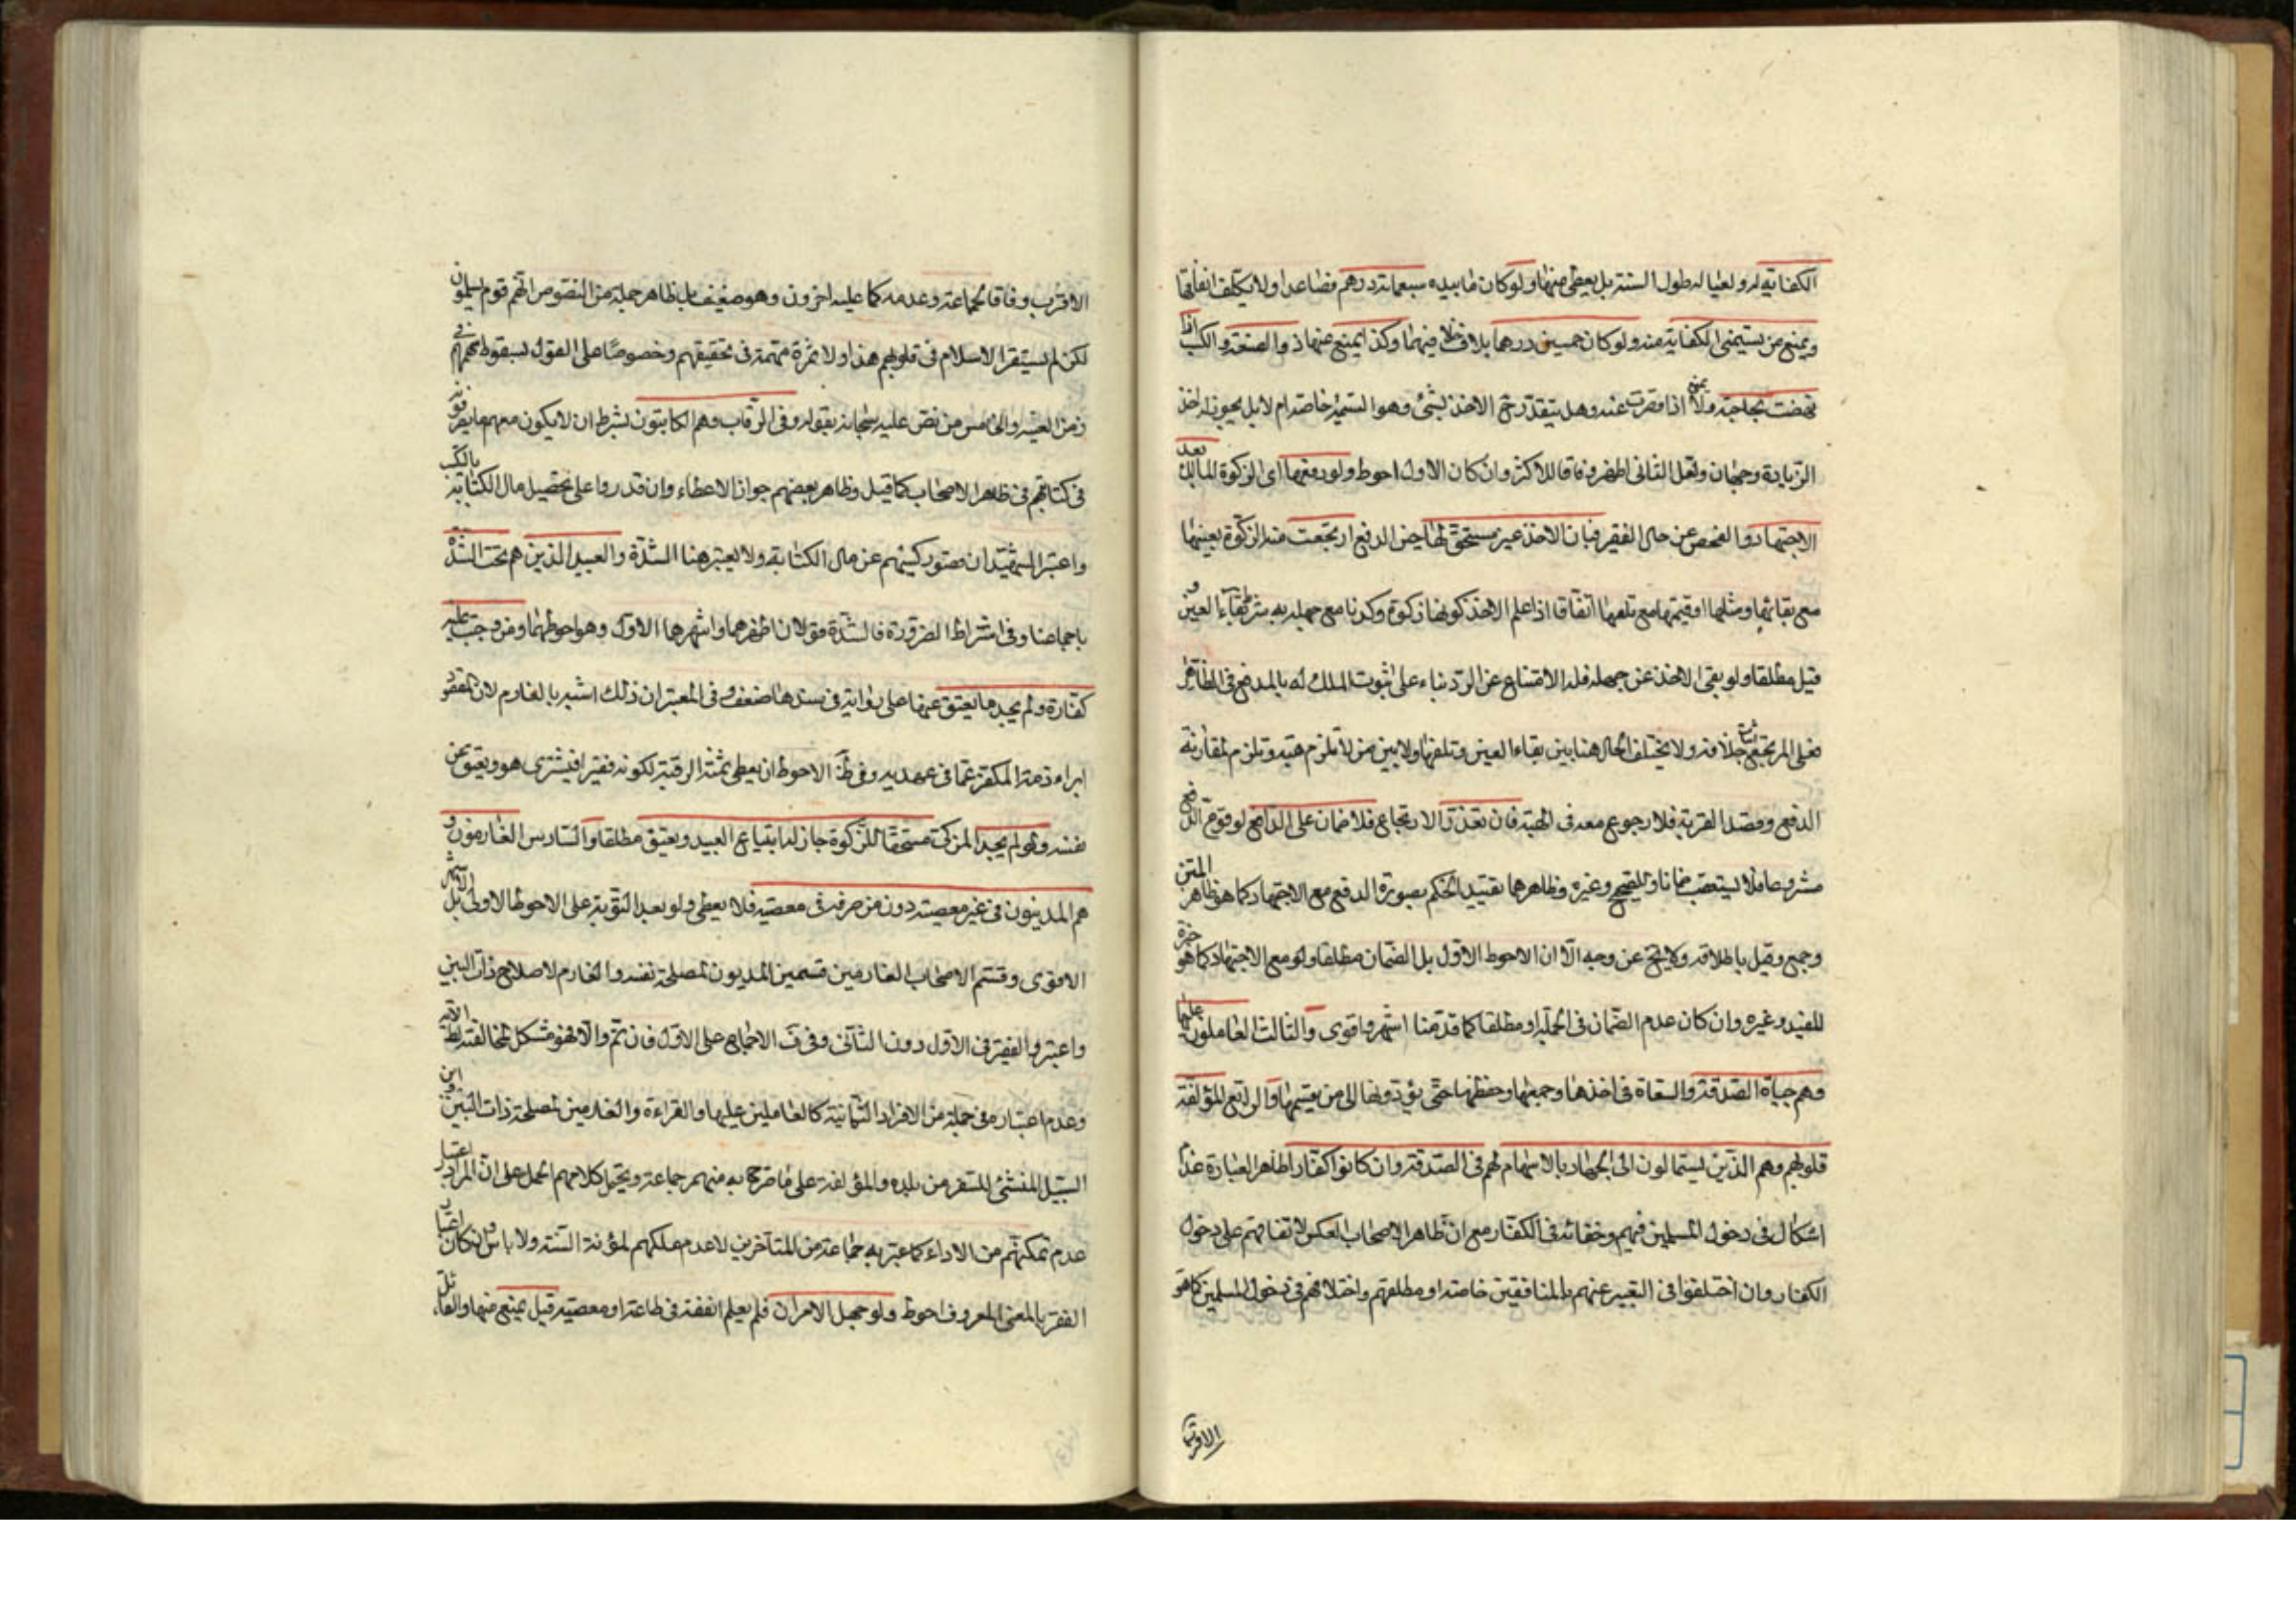 الكفاية له ولعياله طول السنة بل يعطى منها ولو كان ما بيده سبعمائة درهم فصاعدا ولا يكلف انفاقها
ويمنع من يستنمى الكفاية منه ولو كان خمسين درهما بلا خلاف فيهما وكذا يمنع عنها ذو الصنعة والكسب اذا
نهضت بحاجته ولا يمنع اذا قصرت عنه وهل يتقدر ح الاخذ بشئ وهو التتمة خاصة ام لا بل يجوز له اخذ
الزيادة وجهان ولعل الثانى اظهر وفاقا للاكثر وان كان الاول احوط ولو دفعها اى الزكوة المالك بعد
الاجتهاد والفحص عن حال الفقير فبان الاخذ غير مستحق لها حين الدفع ارتجعت منه الزكوة بعينها
مع بقائها ومثلها او قيمتها مع تلفها اتفاقا اذا علم الاخذ كونها زكوة وكذا مع جهله به بشرط بقاء العين و
قيل مطلقا ولو بقى الاخذ عن جهله فله الامتناع عن الرد بناء على ثبوت الملك له بالمدفع فى الظاهر
فعلى المرتجع اثبات خلافه ولا يختلف الحال هنا بين بقاء العين وتلفها ولا بين من لا تلزم هبته وتلزم لمقارنة
الدفع وقصد القربة فلا رجوع معه فى الهبة فان تعذر الارتجاع فلا ضمان على الدافع لوقوع الدفع
مشروعا فلا يستعقب ضمانا وللصحيح وغيره وظاهرهما تقييد الحكم بصورة الدفع مع الاجتهاد كما هو ظاهر المتن
وجمع وقيل باطلاقه ولا يخ عن وجه الا ان الاحوط الاول بل الضمان مطلقا ولو مع الاجتهاد كما هو خيرة
للمفيد وغيره وان كان عدم الضمان فى الجملة او مطلقا كما قدمنا اشهر واقوى والثالث العاملون عليها
وهم جباة الصدقة والسعاة فى اخذها وجمعها وحفظها حتى يؤدونها الى من يقسمها والرابع المؤلفة
قلوبهم وهم الذين يستمالون الى الجهاد بالاسهام لهم فى الصدقة وان كانوا كفارا لظاهر العبارة عدم
اشكال فى دخول المسلمين فيهم وخفائه فى الكفار مع ان ظاهر الاصحاب العكس لاتفاقهم على دخول
الكفار وان اختلفوا فى التعبير عنهم بالمنافقين خاصة او مطلقهم واختلافهم فى دخول المسلمين كما هو
الاقرب
الاقرب وفاقا لجماعة وعدمه كما عليه اخرون وهو ضعيف بل ظاهر جملة من النصوص انهم قوم مسلمون
لكن لم يستقر الاسلام فى قلوبهم هذا ولا ثمرة مهمة فى تحقيقهم وخصوصا على القول بسقوط سهمهم فى
زمن الغيبة والخامس من نص عليه سبحانه بقوله وفى الرقاب وهم المكاتبون بشرط ان لا يكون معهم ما يصرفونه
فى كتابتهم فى ظاهر الاصحاب كما قيل وظاهر بعضهم جواز الاعطاء وان قدروا على تحصيل مال الكتابة بالكسب
واعتبر الشهيدان قصور كسبهم عن مال الكتابة ولا يعتبر هنا الشدة والعبيد الذين هم تحت الشدة
باجماعنا وفى اشتراط الضرورة فالشدة قولان اظهرهما واشهرهما الاول وهو احوطهما ومن وجبت عليه
كفارة ولم يجد ما يعتق عنها على رواية فى سندها ضعف وفى المعتبر ان ذلك اشبه بالغارم لان المقصود
ابراء ذمة المكفر عما فى عهدته وفى ط الاحوط ان يعطى ثمن الرقبة لكونه فقيرا فيشترى هو ويعتق عن
نفسه ولو لم يجد المزكى مستحقا للزكوة جاز له ابتياع العبيد ويعتق مطلقا والسادس الغارمون و
هم المدينون فى غير معصية دون من صرفه فى معصية فلا يعطى ولو بعد التوبة على الاحوط الاولى بل الاشهر
الاقوى وقسم الاصحاب الغارمين قسمين المديون لمصلحة نفسه والغارم لاصلاح ذات البين
واعتبروا الفقر فى الاول دون الثانى وفى ف الاجماع على الاول فان تم والا فهو مشكل لمخالفته لظ الاية
وعدم اعتباره فى جملة من الافراد الثمانية كالعاملين عليها والغزاة والغارمين لمصلحة ذات البين وابن
السبيل المنشئ للسفر من بلده والمؤلفة على ما صرح به منهم جماعة ويحتمل كلامهم الحمل على ان المراد اعتبار
عدم تمكنهم من الاداء كما عبر به جماعة من المتاخرين لا عدم ملكهم لمؤنة السنة ولا باس وان كان اعتبار
الفقر بالمعنى المعروف احوط ولو جهل الامران فلم يعلم انفقه فى طاعة او معصية قيل يمنع منها والقائل